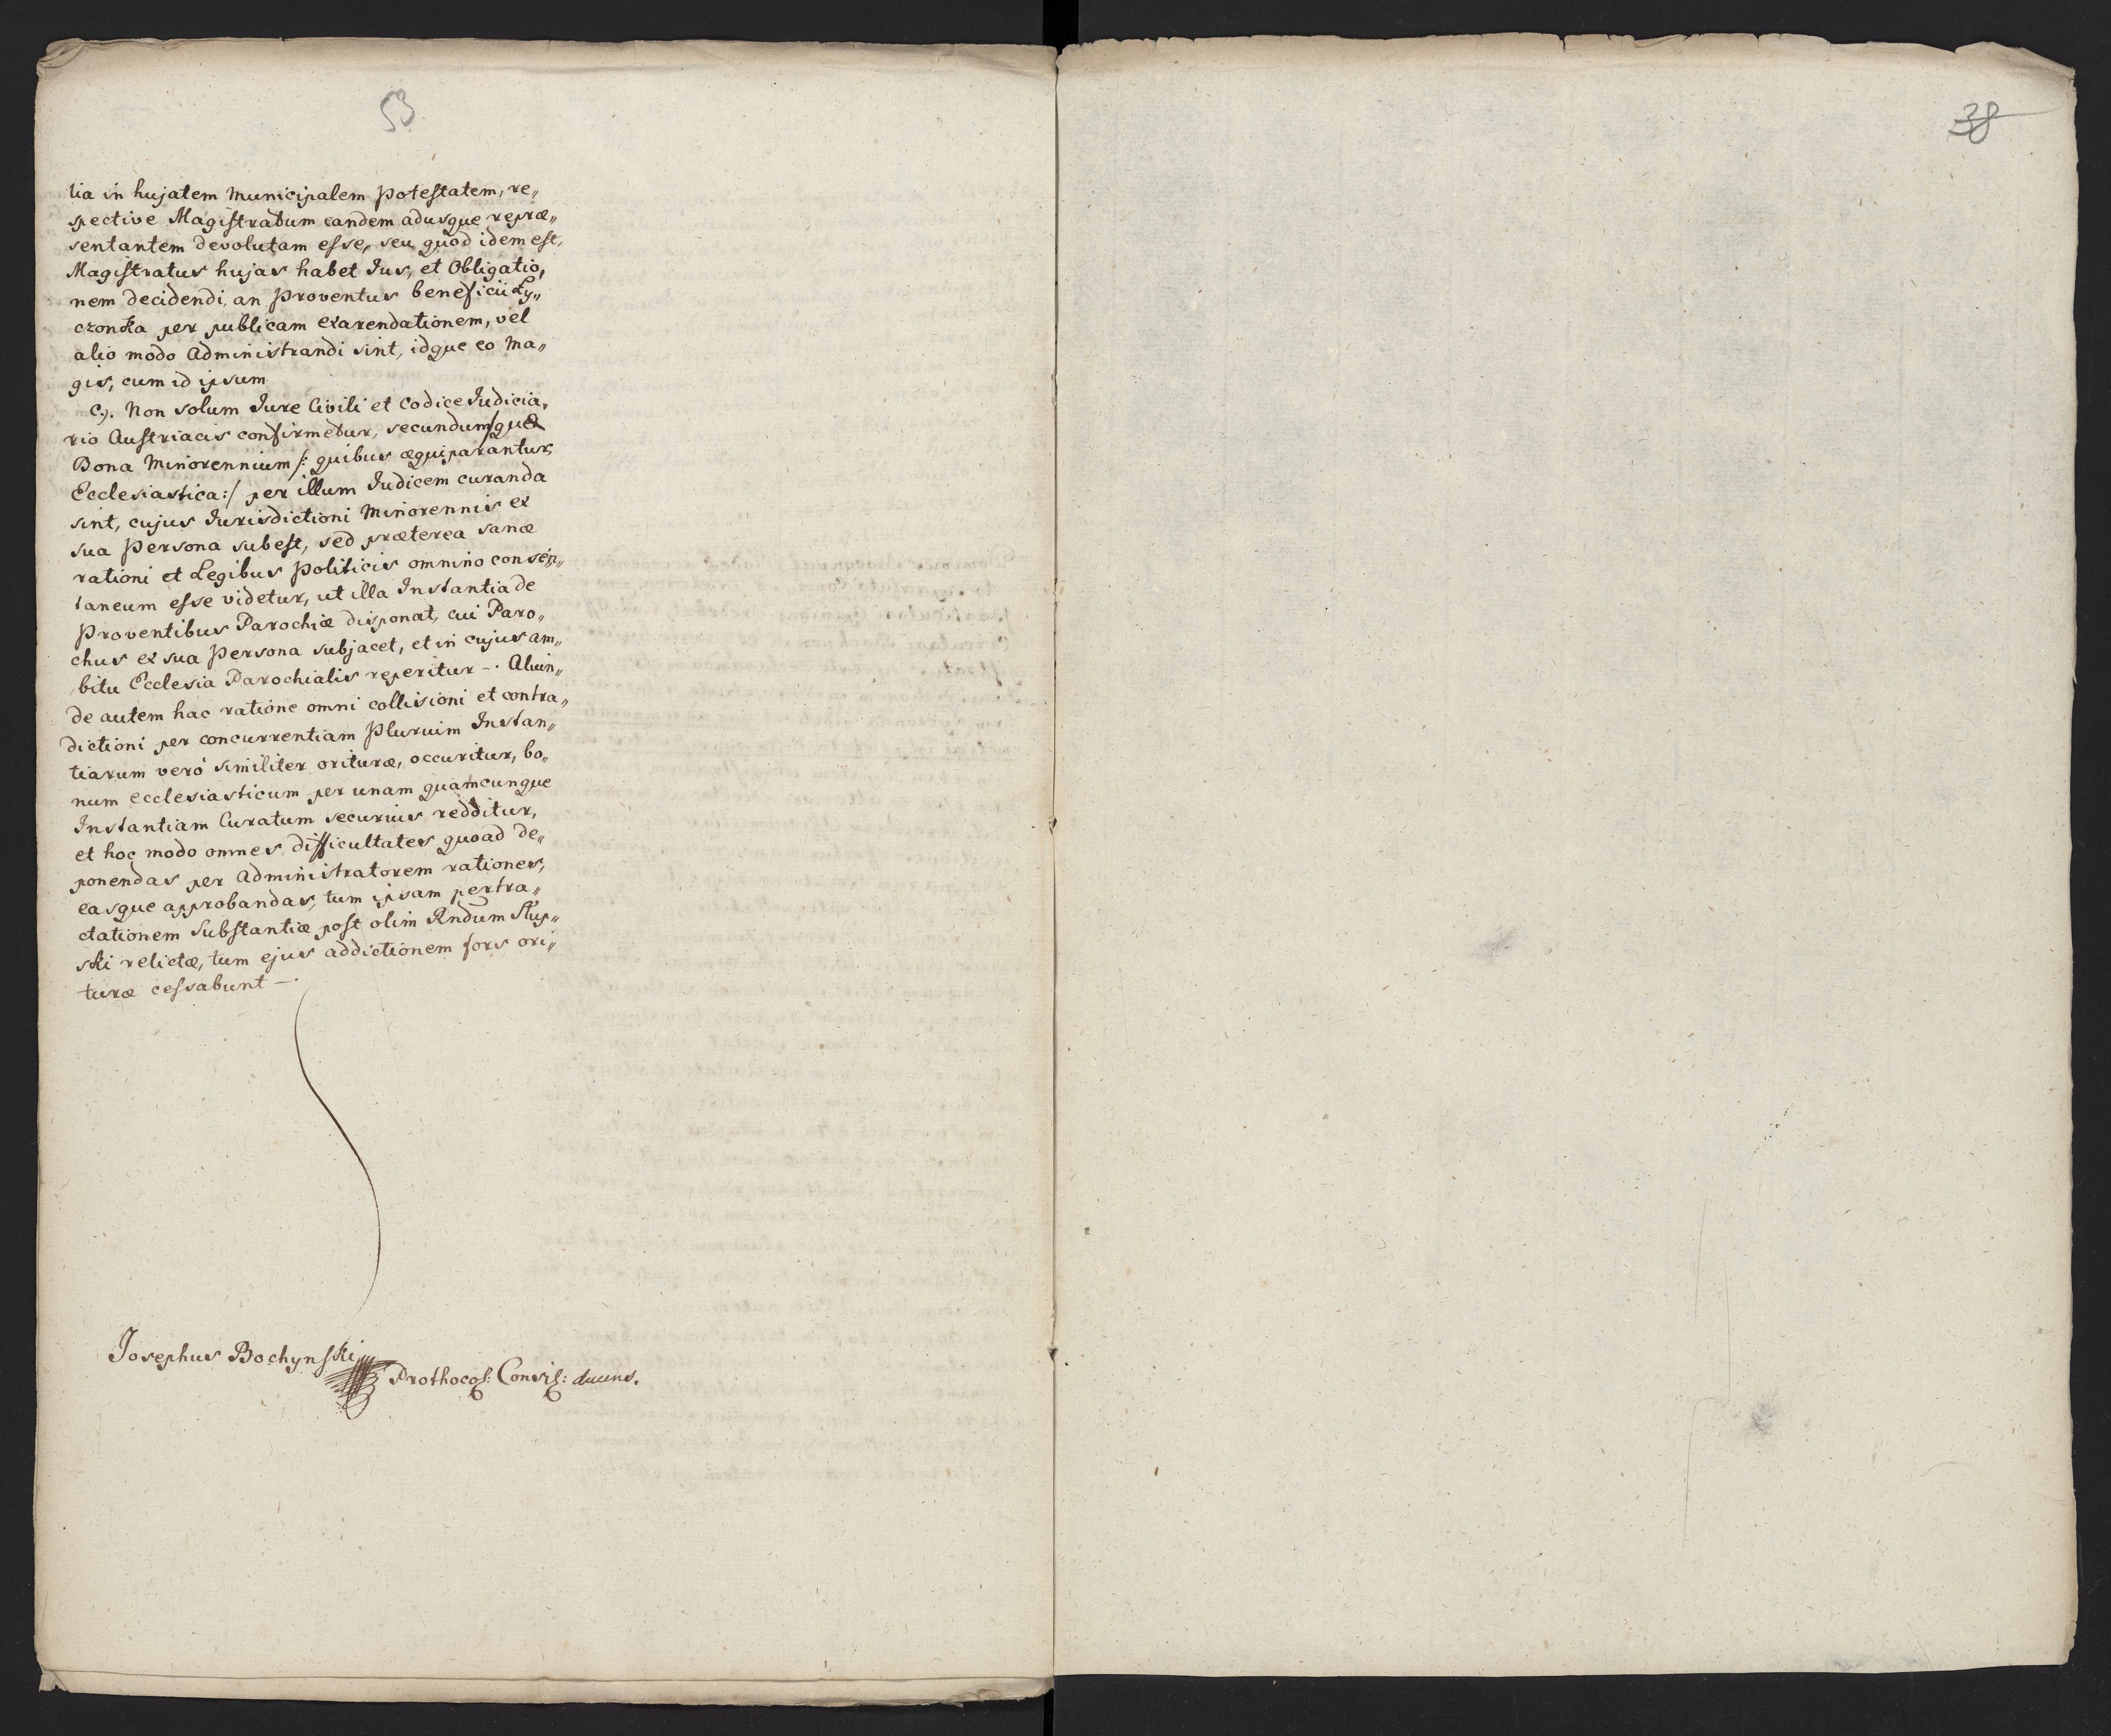 53
38
tia in hujatem Municipalem potestatem, re„
spective Magistratum eandem adusque repræ„
sentantem devolutam esse, seu quod idem est,
Magistratus hujas habet Jus, et Obligatio„
nem decidendi, an proventus beneficii Ły„
czonka per publicam exarendationem, vel
alio modo Administrandi sint, idque eo ma„
gis, cum id ipsum
c). Non solum Jure Civili et Codice Judicia„
rio Austriacis confirmetur, secundum quæ
Bona Minorennium /: quibus æquiparantur
Ecclesiastica :/ per illum Judicem curanda
sint, cujus Jurisdictioni Minorennis ex
sua Persona subest, sed præterea sanæ
rationi et Legibus politicis omnino consen„
taneum esse videtur, ut illa Instantia de
Proventibus Parochiæ disponat, cui Paro„
chus ex sua Persona subjacet, et in cujus am„
bitu Ecclesia Parochialis reperitur -. Aliun„
de autem hac ratione omni collisioni et contra„
dictioni per concurrentiam Plurium Instan„
tiarum veró similiter orituræ, occuritur, bo„
num ecclesiasticum per unam quamcunque
Instantiam Curatum securius redditur,
et hoc modo omnes difficultates quoad de„
ponendas per Administratorem rationes,
easque approbandas, tum ipsam pertra„
ctationem Substantiæ post olim Rndum Słup„
ski relictæ, tum ejus addictionem fors ori„
turæ cessabunt -.
Josephus Bochynski
Prothocol: Consil: ducens.